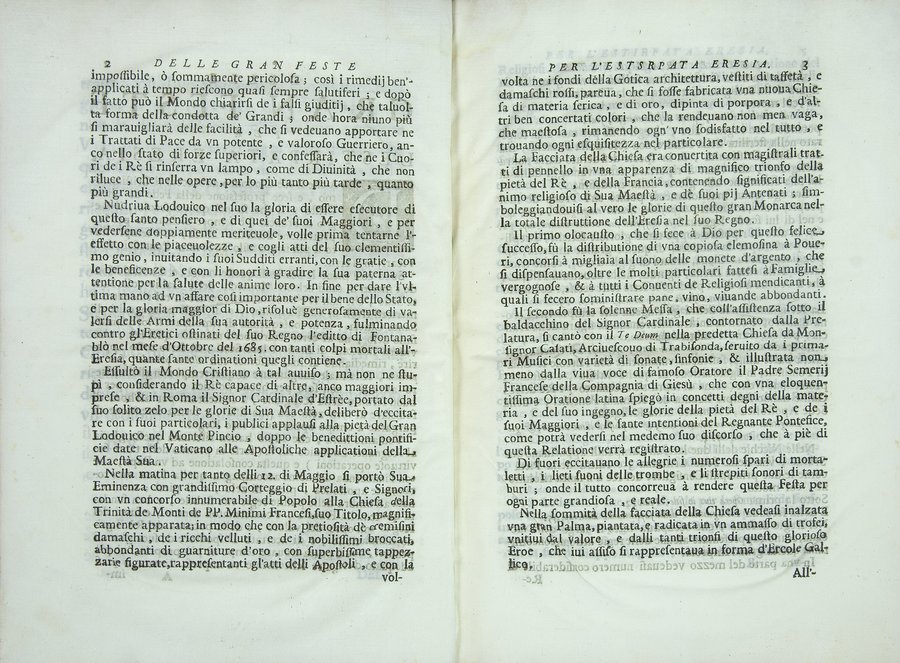 2 DELLE GRAN FESTE
impossibile, ò sommamente pericolosa; così i rimedij ben'-
applicati à tempo riescono quasi sempre salutiferi; e dopò
il fatto può il Mondo chiarirsi de i falsi giuditij, che taluol-
ta forma della condotta de' Grandi; onde hora niuno più
si marauigliarà delle facilità, che si vedeuano apportare ne
i Trattati di Pace da vn potente, e valoroso Guerriero, an-
co nello stato di forze superiori, e confessarà, che ne i Cuo-
ri de i Rè si rinserra vn lampo, come di Diuinità, che non
riluce, che nelle opere, per lo più tanto più tarde, quanto
più grandi.
Nudriua Lodouico nel suo la gloria di essere esecutore di
questo santo pensiero, e di quei de' suoi Maggiori, e per
vedersene doppiamente meriteuole, volle prima tentarne l'-
effetto con le piaceuolezze, e cogli atti del suo clementissi-
mo genio, inuitando i suoi Sudditi erranti, con le gratie, con
le beneficenze, e con li honori à gradire la sua paterna at-
tentione per la salute delle anime loro. In fine per dare l'vl-
tima mano ad vn affare così importante per il bene dello Stato,
e per la gloria maggior di Dio, risoluè generosamente di va-
lersi delle Armi della sua autorità, e potenza, fulminando
contro gl'Eretici ostinati del suo Regno l'editto di Fontana-
blò nel mese d'Ottobre del 1685. con tanti colpi mortali all'-
Eresia, quante sante ordinationi quegli contiene.
Essultò il Mondo Cristiano à tal auuiso; mà non ne stu-
pì, considerando il Rè capace di altre, anco maggiori im-
prese, & in Roma il Signor Cardinale d'Estrèe, portato dal
suo solito zelo per le glorie di Sua Maestà, deliberò d'eccita-
re con i suoi particolari, i publici applausi alla pietà del Gran
Lodouico nel Monte Pincio, doppo le benedittioni pontifi-
cie date nel Vaticano alle Apostoliche applicationi della
Maestà Sua.
Nella matina per tanto delli 12. di Maggio si portò Sua
Eminenza con grandissimo Corteggio di Prelati, e Signori,
con vn concorso innumerabile di Popolo alla Chiesa della
Trinità de Monti de PP. Minimi Francesi, suo Titolo, magnifi-
camente apparata; in modo che con la pretiosità de cremisini
damaschi, de i ricchi velluti, e de i nobilissimi broccati,
abbondanti di guarniture d'oro, con superbissime tappez-
zarie figurate, rappresentanti gl'atti delli Apostoli, e con la
vol-
PER L'ESTSRPATA ERESIA. 3
volta ne i fondi della Gotica architettura, vestiti di taffetà, e
damaschi rossi, pareua, che si fosse fabricata vna nuoua Chie-
sa di materia serica, e di oro, dipinta di porpora, e d'al-
tri ben concertati colori, che la rendeuano non men vaga,
che maestosa, rimanendo ogn'vno sodisfatto nel tutto, e
trouando ogni esquisitezza nel particolare.
La Facciata della Chiesa era conuertita con magistrali trat-
ti di pennello in vna apparenza di magnifico trionfo della
pietà del Rè, e della Francia, contenendo significati dell'a-
nimo religioso di Sua Maestà, e dè suoi pij Antenati; sim-
boleggiandouisi al vero le glorie di questo gran Monarca nel-
la totale distruttione dell'Eresia nel suo Regno.
Il primo olocausto, che si fece à Dio per questo felice
successo, fù la distributione di vna copiosa elemosina à Poue-
ri, concorsi à migliaia al suono delle monete d'argento, che
si dispensauano, oltre le molti particolari fattesi à Famiglie
vergognose, & à tutti i Conuenti de Religiosi mendicanti, à
quali si fecero somministrare pane, vino, viuande abbondanti.
Il secondo fù la solenne Messa, che coll'assistenza sotto il
baldacchino del Signor Cardinale, contornato dalla Pre-
latura, si cantò con il Te Dium nella predetta Chiesa da Mon-
signor Casati, Arciuescouo di Trabisonda, seruito da i prima-
ri Musici con varietà di sonate, sinfonie, & illustrata non
meno dalla viua voce di famoso Oratore il Padre Semerij
Francese della Compagnia di Giesù, che con vna eloquen-
tissima Oratione latina spiegò in concetti degni della mate-
ria, e del suo ingegno, le glorie della pietà del Rè, e de i
suoi Maggiori, e le sante intentioni del Regnante Pontefice,
come potrà vedersi nel medemo suo discorso, che à piè di
questa Relatione verrà registrato.
Di fuori eccitauano le allegrie i numerosi spari di morta-
letti, i lieti suoni delle trombe, e li strepiti sonori di tam-
buri; onde il tutto concorreua à rendere questa Festa per
ogni parte grandiosa, e reale.
Nella sommità della facciata della Chiesa vedeasi inalzata
vna gran Palma, piantata, e radicata in vn ammasso di trofei,
vnitiui dal valore, e dalli tanti trionsi di questo glorioso
Eroe, che iui assiso si rappresentaua in forma d'Ercole Gal-
lico.
All'-